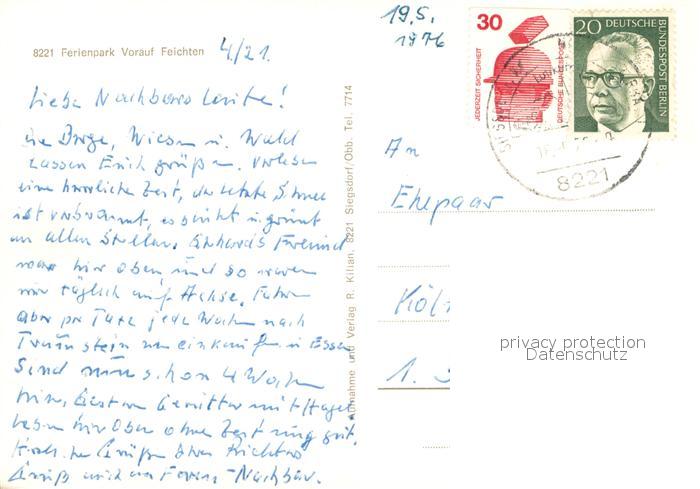 8221 Ferienpark Vorauf Feichten
4/21.
Liebe Nachbarsleute!
die Berge, Wiesen u. Wald
lassen Euch grüßen. Verleben
eine herrliche Zeit, der letzte Schnee
ist verbrannt, es blüht u. grünt
an allen Stellen. Freund
war hier oben und so waren
wir täglich auf Achse. Fahren
aber per Taxe jede Woche nach
Traunstein um einkaufen u. Essen
Sind nun schon 4 Wochen
hier, Gestern Gewitter mit Hagel
leben hier oben ohne Zeitung gut.
Grüße
Gruß auch an Nachbar.
Aufnahme und Verlag R. Kilian, 8221 Siegsdorf/Obb. Tel. 7714
19.5.
1976
30
JEDERZEIT SICHERHEIT
DEUTSCHE BUNDESPOST
20 DEUTSCHE BUNDESPOST BERLIN
8221
An
Ehepaar
Köln
1.
privacy protection
Datenschutz